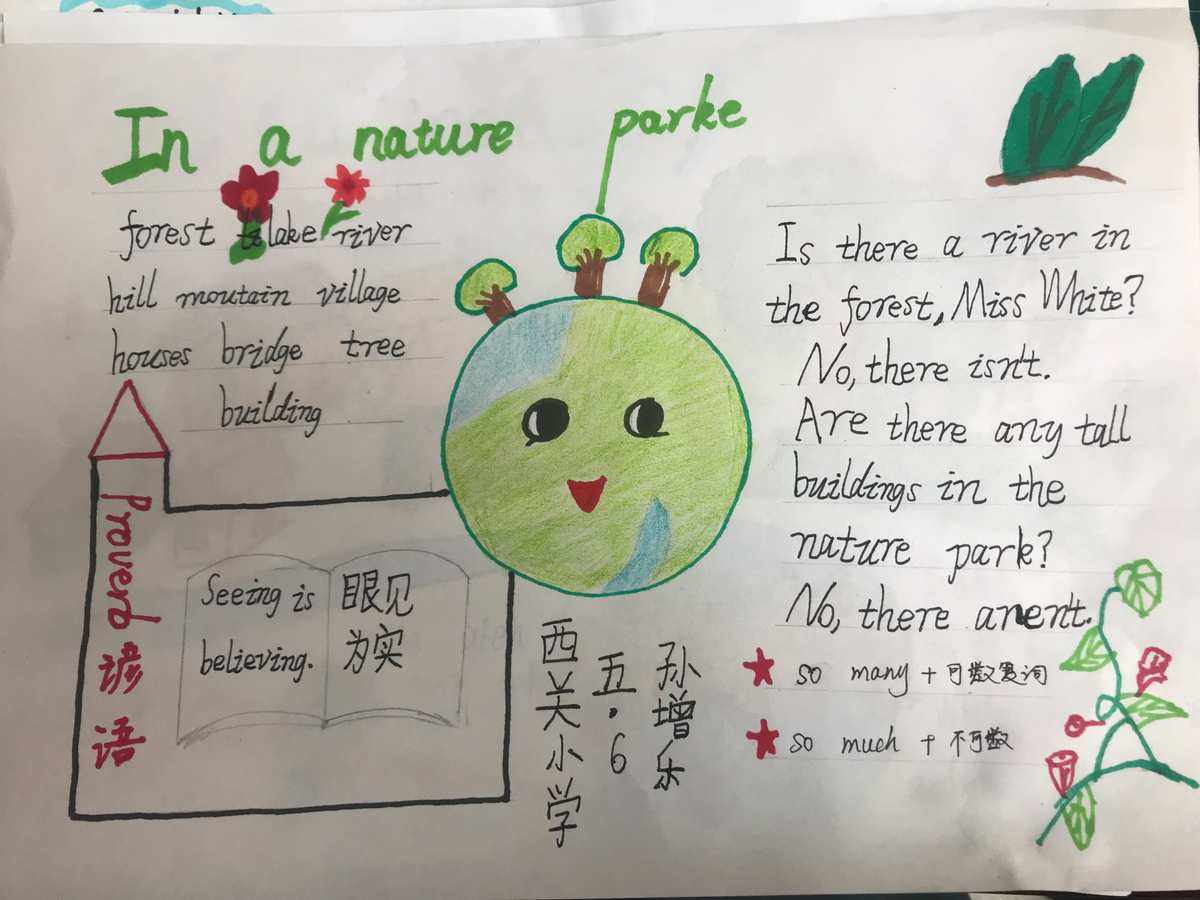 In a nature parke
forest lake river
hill moutain village
houses bridge tree
building
Proverb 谚语
Seeing is
believing.
眼见
为实
西关小学
五.6
孙增乐
Is there a river in
the forest, Miss White?
No, there isn't.
Are there any tall
buildings in the
nature park?
No, there aren't.
so many + 可数复词
so much + 不可数